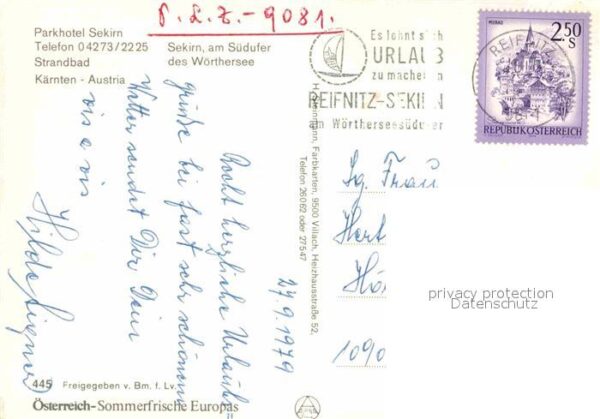 P.L.Z.-9081.
Parkhotel Sekirn
Telefon 04273/2225
Strandbad
Kärnten - Austria
Sekirn, am Südufer
des Wörthersee
Es lohnt sich
URLAUB
zu machen in
REIFNITZ-SEKIRN
am Wörtherseesüdufer
REIFNITZ
MURAU
2.50
S
REPUBLIK ÖSTERREICH
Recht herzliche Urlaubs
grüße bei fast sehr schönem
Wetter sendet Dir Dein
vis a vis
Hilde
27.9.1979
Farbkarten, 9500 Villach, Heizhausstraße 52,
Telefon 26062 oder 27547
Sg. Frau
Hert
Hö
1090
privacy protection
Datenschutz
445 Freigegeben v. Bm. f. Lv.
Österreich-Sommerfrische Europas